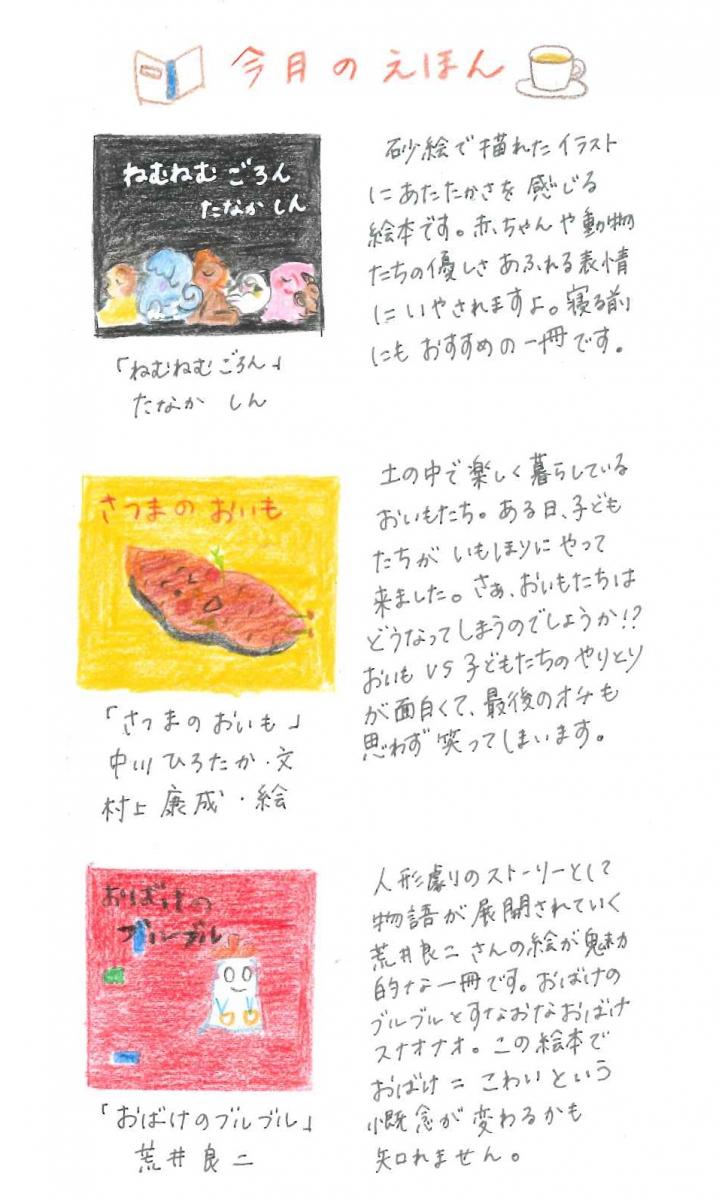 今月のえほん
ねむねむ ごろん
たなか しん
「ねむねむごろん」
たなか しん
砂絵で描れたイラスト
にあたたかさを感じる
絵本です。赤ちゃんや動物
たちの優しさあふれる表情
にいやされますよ。寝る前
にもおすすめの一冊です。
さつまのおいも
「さつまのおいも」
中川ひろたか・文
村上康成・絵
土の中で楽しく暮らしている
おいもたち。ある日、子ども
たちがいもほりにやって
来ました。さぁ、おいもたちは
どうなってしまうのでしょうか!?
おいもVS子どもたちのやりとり
が面白くて、最後のオチも
思わず笑ってしまいます。
おばけの
ブルブル
「おばけのブルブル」
荒井良二
人形劇りのストーリーとして
物語が展開されていく
荒井良二さんの絵が魅力
的な一冊です。おばけの
ブルブルとすなおなおばけ
スナオナオ。この絵本で
おばけ=こわいという
概念が変わるかも
知れません。